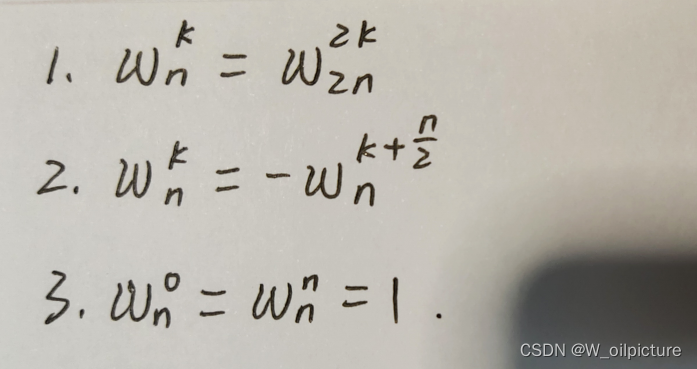 1. ω_n^k = ω_{2n}^{2k}
2. ω_n^k = -ω_n^{k+\frac{n}{2}}
3. ω_n^0 = ω_n^n = 1 .
CSDN @W_oilpicture